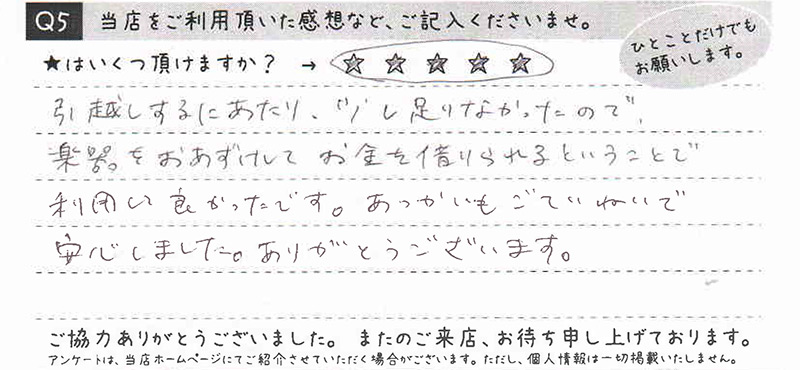 Q5 当店をご利用頂いた感想など、ご記入くださいませ。
ひとことだけでも
お願いします。
★はいくつ頂けますか? → ☆ ☆ ☆ ☆ ☆
引越しするにあたり、少し足りなかったので、
楽器をおあずけして お金を借りられるということで
利用して良かったです。あつかいもごていねいで
安心しました。ありがとうございます。
ご協力ありがとうございました。 またのご来店、お待ち申し上げております。
アンケートは、当店ホームページにてご紹介させていただく場合がございます。ただし、個人情報は一切掲載いたしません。